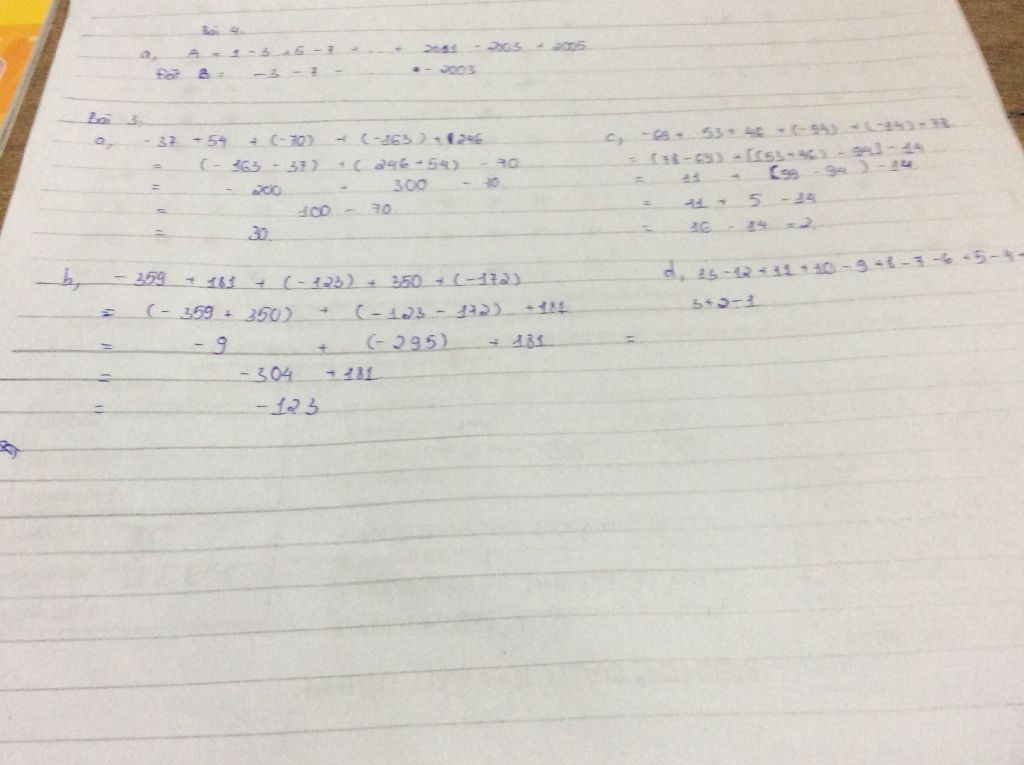 Bài 4.
a, A = 1 - 3 + 5 - 7 + ... + 2001 - 2003 + 2005
Đặt B = -3 - 7 - ...... - 2003
Bài 3.
a, -37 + 54 + (-70) + (-163) + 246
= (-163 - 37) + (246 + 54) - 70
= -200 + 300 - 70
= 100 - 70
= 30.
b, -359 + 181 + (-123) + 350 + (-172)
= (-359 + 350) + (-123 - 172) + 181
= -9 + (-295) + 181
= -304 + 181
= -123
c, -69 + 53 + 46 + (-94) + (-14) + 78
= (78 - 69) + [(53 + 46) - 94] - 14
= 11 + [99 - 94) - 14
= 11 + 5 - 14
= 16 - 14 = 2
d, 13 - 12 + 11 + 10 - 9 + 8 - 7 - 6 + 5 - 4 +
3 + 2 - 1
=